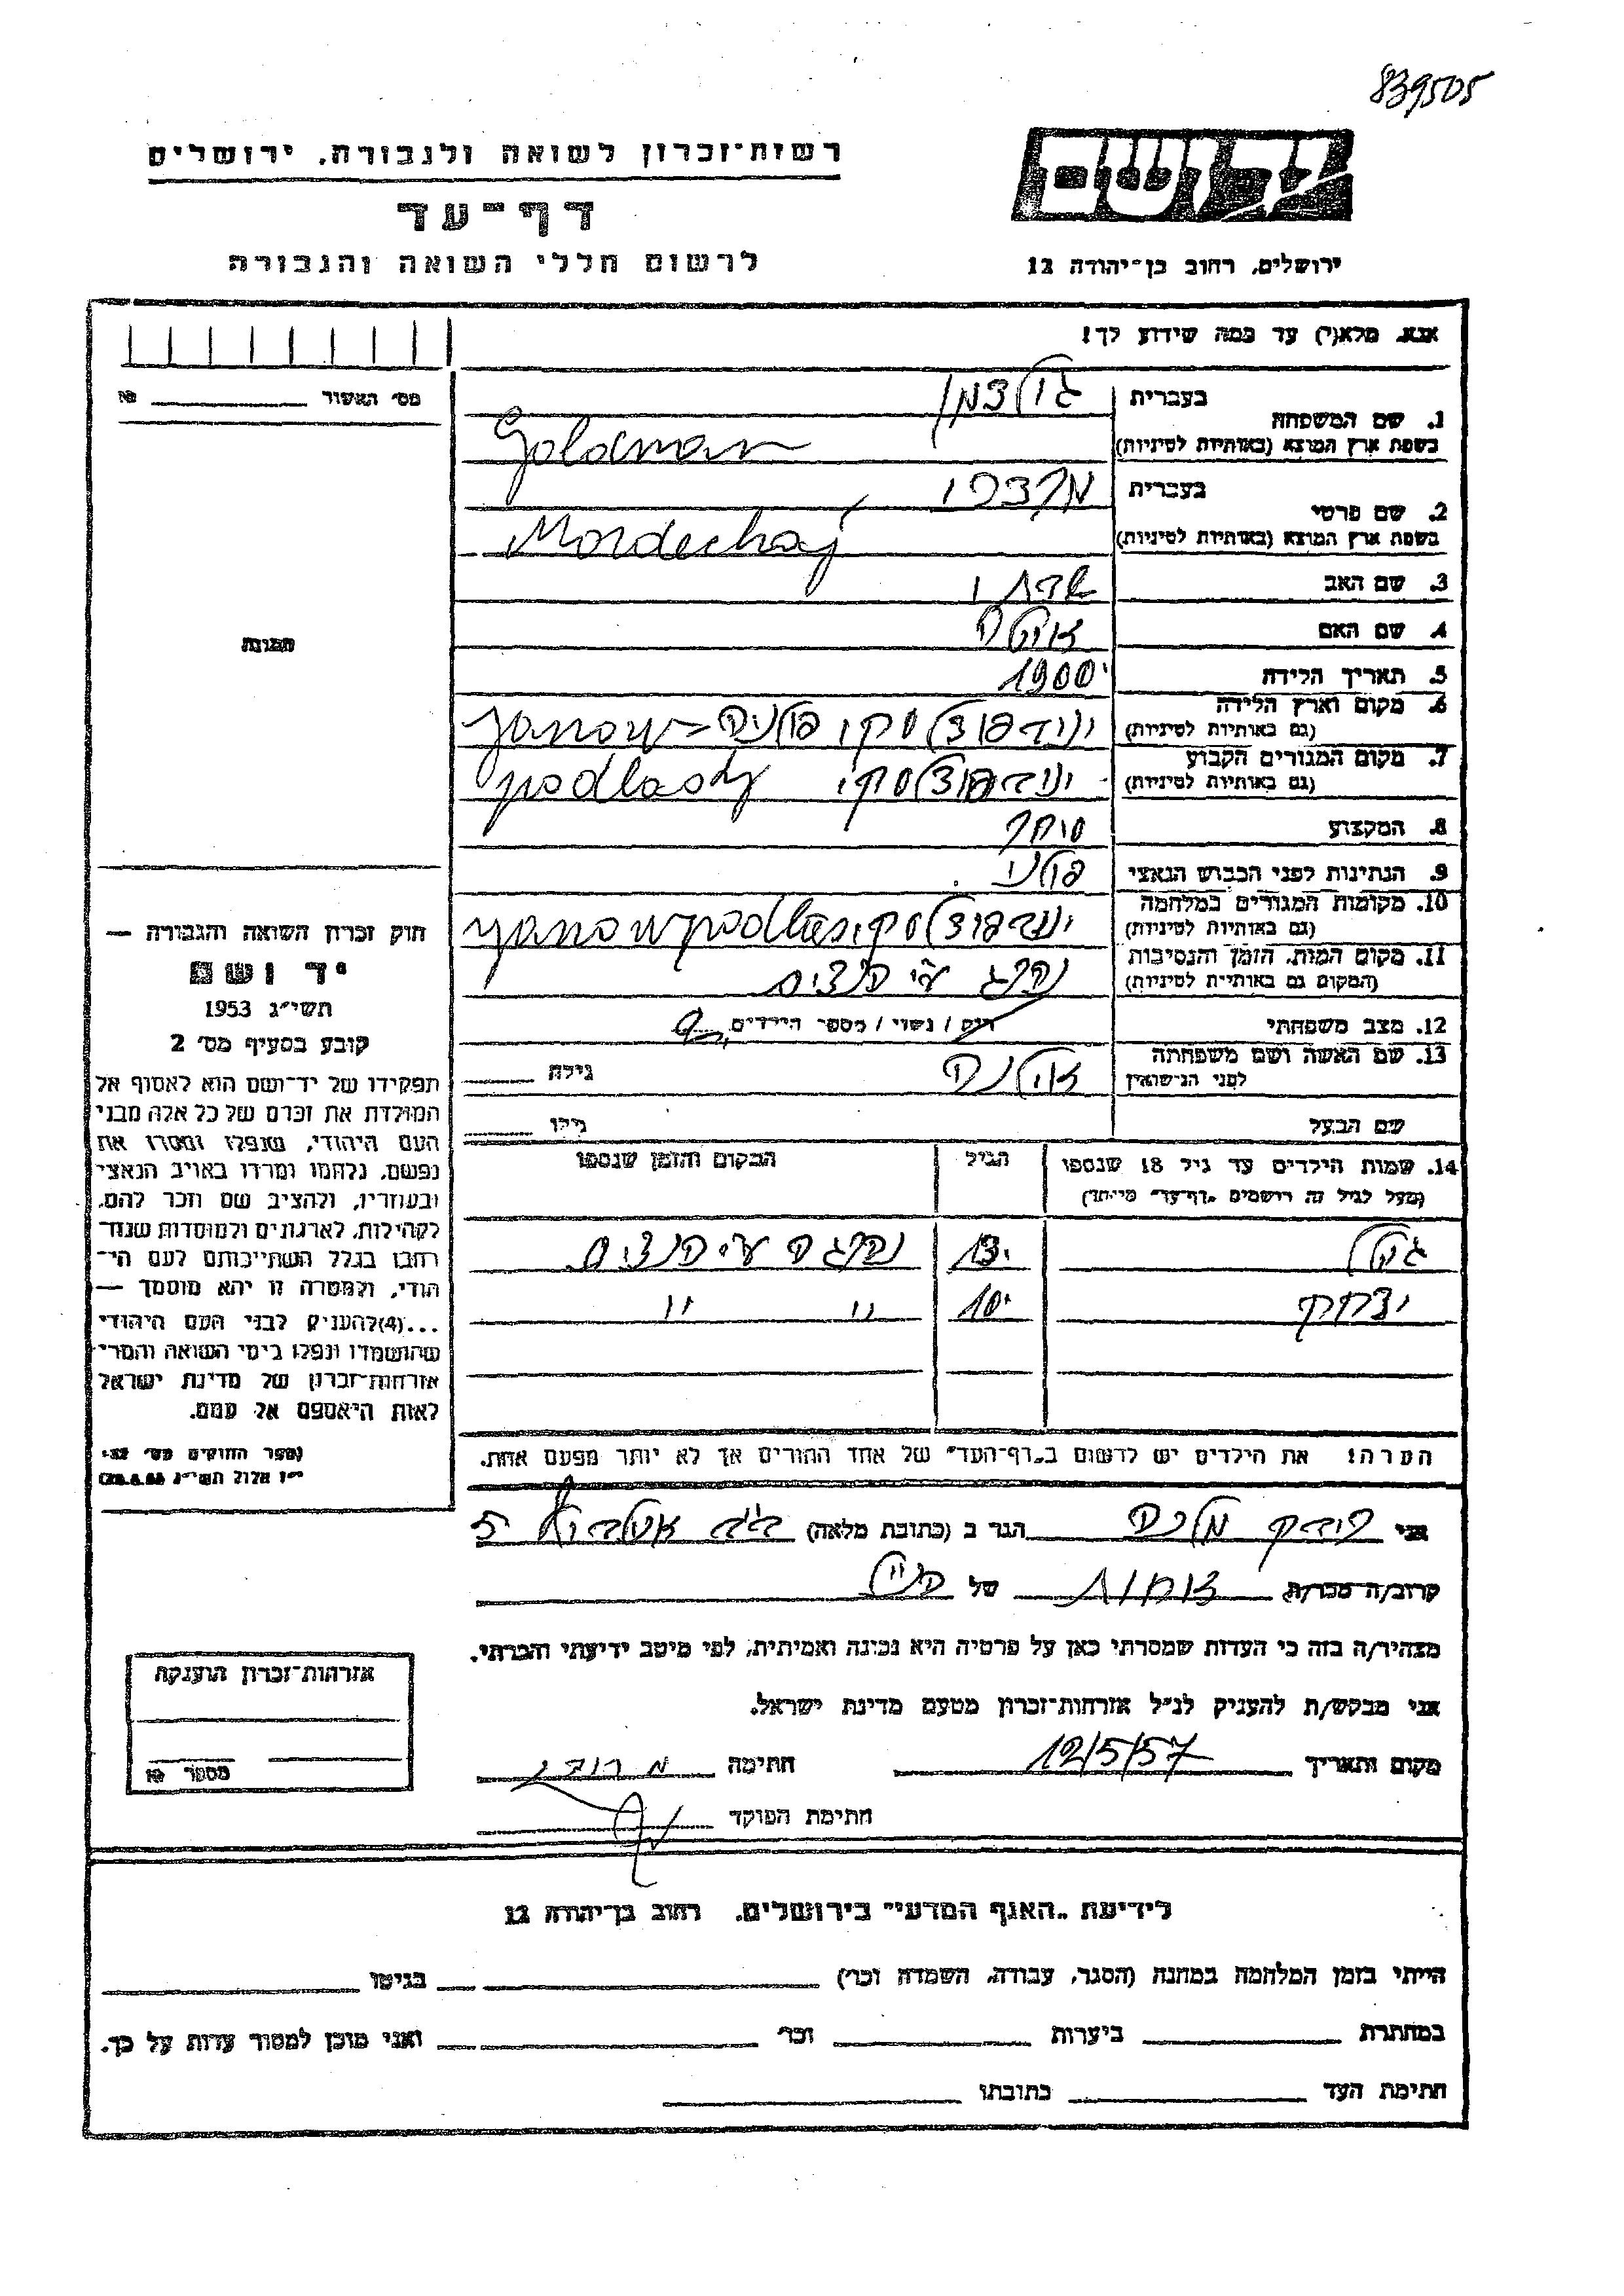 839505
רשות־זכרון לשואה ולגבורה, ירושלים
דף־עד
לרשום חללי השואה והגבורה
יד ושם
ירושלים, רחוב בן־יהודה 12
אנא, מלא(י) עד כמה שידוע לך!
מס׳ האשור
1. שם המשפחה
בעברית גולדמן
בשפת ארץ המוצא (באותיות לטיניות) Goldman
2. שם פרטי
בעברית מרדכי
בשפת ארץ המוצא (באותיות לטיניות) Mordechaj
3. שם האב
4. שם האם
5. תאריך הלידה 1900
6. מקום וארץ הלידה
(גם באותיות לטיניות) ינוב פודלסקי פולניה - Janow
7. מקום המגורים הקבוע
(גם באותיות לטיניות) ינוב פודלסקי podlasky
8. המקצוע סוחר
9. הנתינות לפני הכבוש הנאצי פולני
10. מקומות המגורים במלחמה
(גם באותיות לטיניות) ינוב פודלסקי
11. מקום המות, הזמן והנסיבות
(המקום גם באותיות לטיניות) נהרג ע״י הנצים
12. מצב משפחתי רוק / נשוי / מספר הילדים
13. שם האשה ושם משפחתה
לפני הנישואין גילה
שם הבעל גילו
14. שמות הילדים עד גיל 18 שנספו
(מעל לגיל זה רושמים "דף־עד" מיוחד)
הגיל
המקום והזמן שנספו
13 נהרגה ע״י הנצים
יצחק 10 " "
הערה! את הילדים יש לרשום ב"דף־העד" של אחד ההורים אך לא יותר מפעם אחת.
תמונה
חוק זכרון השואה והגבורה —
יד ושם
תשי״ג 1953
קובע בסעיף מס׳ 2
תפקידו של יד־ושם הוא לאסוף אל
המולדת את זכרם של כל אלה מבני
העם היהודי, שנפלו ומסרו את
נפשם, נלחמו ומרדו באויב הנאצי
ובעוזריו, ולהציב שם וזכר להם,
לקהילות, לארגונים ולמוסדות שנח־
רבו בגלל השתייכותם לעם הי־
הודי, ולמטרה זו יהא מוסמך —
...(4)להעניק לבני העם היהודי
שהושמדו ונפלו בימי השואה והמרי
אזרחות־זכרון של מדינת ישראל
לאות היאספם אל עמם.
(ספר החוקים מס׳ 132
י״ז אלול תשי״ג 28.8.53)
אני הגר ב (כתובת מלאה)
קרוב/ה מכר/ת של
מצהיר/ה בזה כי העדות שמסרתי כאן על פרטיה היא נכונה ואמיתית, לפי מיטב ידיעתי והכרתי.
אני מבקש/ת להעניק לנ״ל אזרחות־זכרון מטעם מדינת ישראל.
מקום ותאריך 12/5/57 חתימה
חתימת הפוקד
אזרחות־זכרון הוענקה
מספר
לידיעת "האגף המדעי" בירושלים, רחוב בן־יהודה 12
הייתי בזמן המלחמה במחנה (הסגר, עבודה, השמדה וכו׳) בגיטו
במחתרת ביערות וכו׳ ואני מוכן למסור עדות על כך.
חתימת העד כתובתו